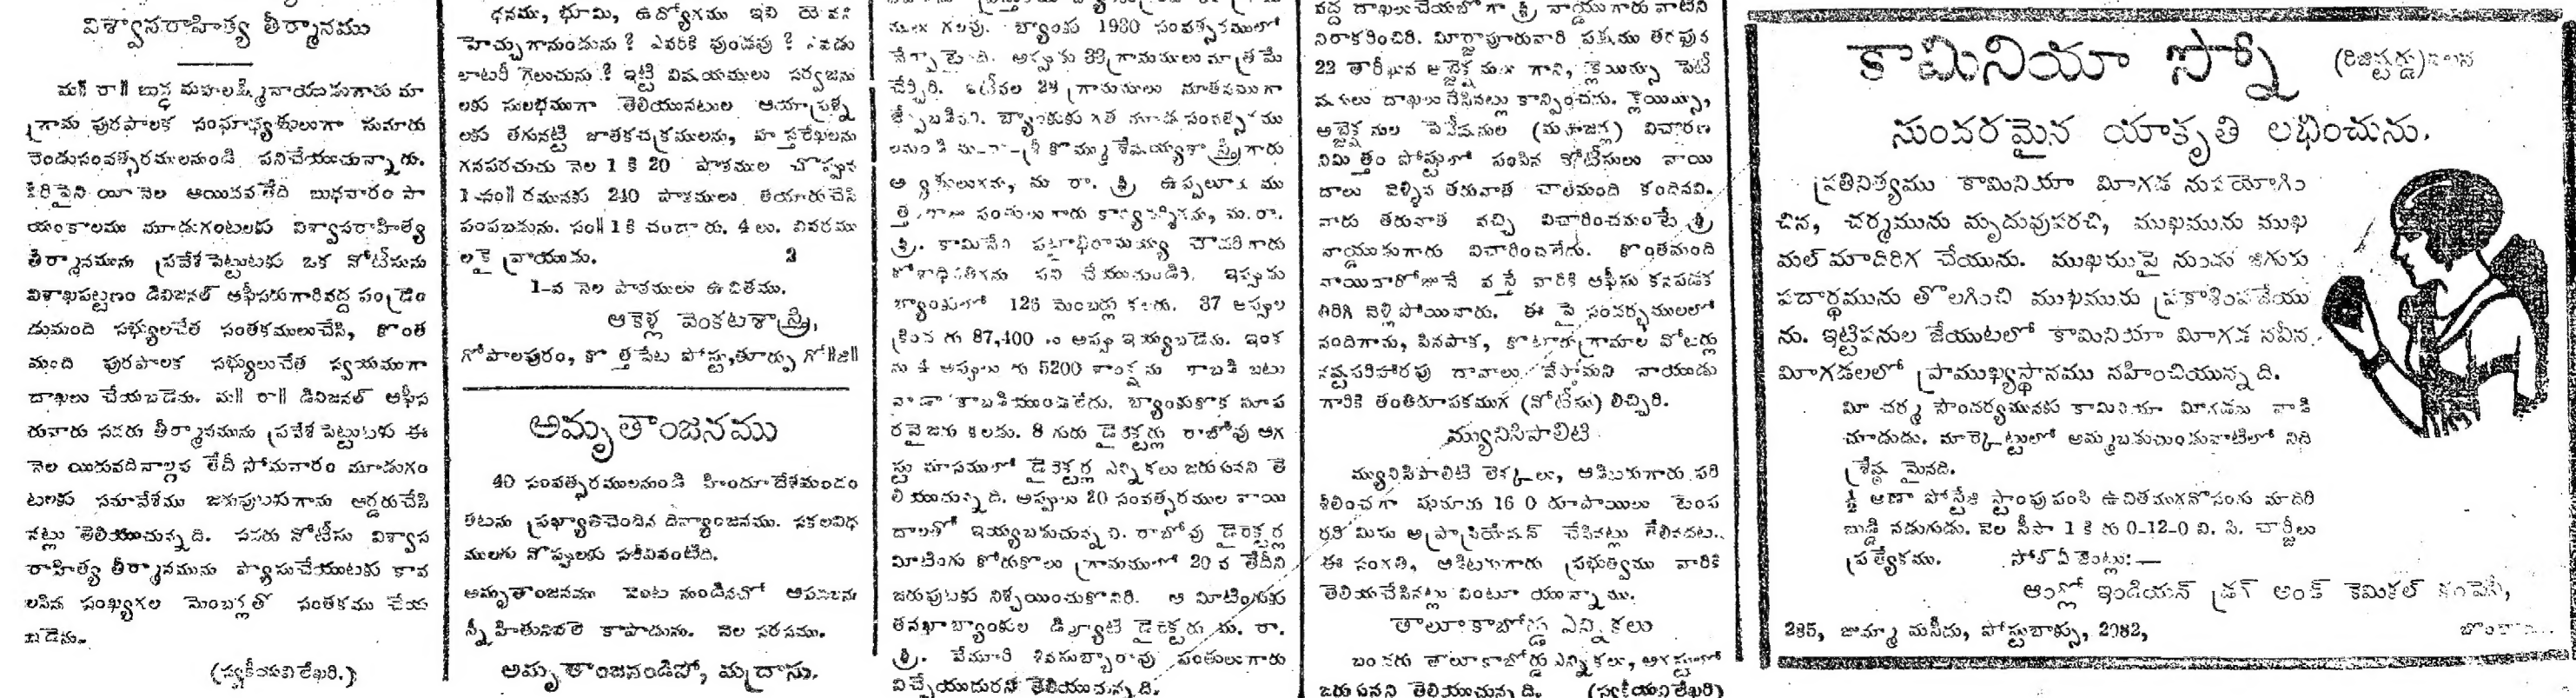 విశ్వాసరాహిత్య తీర్మానము
మ॥ రా॥ బుద్ధ మహలక్ష్మినాయుడుగారు మా
గ్రామ పురపాలక సంఘాధ్యక్షులుగా సుమారు
రెండుసంవత్సరములనుండి పనిచేయుచున్నారు.
వీరిపైని యీ నెల ఆయిదవతేది బుధవారం సా
యంకాలము మూడుగంటలకు విశ్వాసరాహిత్య
తీర్మానమును ప్రవేశపెట్టుటకు ఒక నోటీసును
విశాఖపట్టణం డివిజనల్ ఆఫీసరుగారివద్ద పండ్రెం
డుమంది సభ్యులచేత సంతకములుచేసి, కొంత
మంది పురపాలక సభ్యులుచేత స్వయముగా
దాఖలు చేయబడెను. మ॥ రా॥ డివిజనల్ ఆఫీస
రువారు సదరు తీర్మానమును ప్రవేశపెట్టుటకు ఈ
నెల యిరువదినాల్గవ తేదీ సోమవారం మూడుగం
టలకు సమావేశము జరుపుటకుగాను ఆర్డరుచేసి
నట్లు తెలియుచున్నది. సదరు నోటీసు విశ్వాస
రాహిత్య తీర్మానమును ప్యాసుచేయుటకు కావ
లసిన సంఖ్యగల మెంబర్లతో సంతకము చేయ
బడెను.
(స్వకీయవిలేఖరి.)
ధనము, భూమి, ఉద్యోగము ఇవి
హెచ్చుగానుండును? ఎవరికి వుండవు? ఎవడు
లాటరీ గెలుచును? ఇట్టి విషయములు సర్వజను
లకు సులభముగా తెలియునటుల ఆయాప్రశ్న
లకు తగునట్టి జాతకచక్రములను, హస్తరేఖలను
గనపరచుచు నెల 1 కి 20 పాఠముల చొప్పున
1 సం॥రమునకు 240 పాఠములు తయారుచేసి
పంపబడును. సం॥ 1 కి చందా రు. 4 లు. వివరము
లకై వ్రాయుడు. 3
1-వ నెల పాఠములు ఉచితము.
ఆకెళ్ల వెంకటశాస్త్రి,
గోపాలపురం, కొత్తపేట పోస్టు, తూర్పు గో॥జి॥
అమృతాంజనము
40 సంవత్సరములనుండి హిందూదేశమందం
తటను ప్రఖ్యాతిచెందిన దివ్యాంజనము. సకలవిధ
ములగు నొప్పులకు సంజీవినివంటిది.
అమృతాంజనము వెంట నుండినచో ఆపదలను
స్నిహితునివలె కాపాడును. వెల సరసము.
అమృతాంజనండిపో, మద్రాసు.
ములు గలవు. బ్యాంకు 1930 సంవత్సరములో
చేర్చిరి. ఇటీవల 28 గ్రామములు నూతనముగా
చేర్పబడినవి. బ్యాంకుకు గత మూడు సంవత్సరము
లనుండి మ-రా-శ్రీ కొమ్ము శేషయ్యశాస్త్రిగారు
అధ్యక్షులుగను, మ. రా. శ్రీ ఉప్పలూరి ము
పంతులుగారు కార్యదర్శిగను, మ. రా.
శ్రీ. కామినేని పట్టాభిరామయ్య చౌదరిగారు
కోశాధిపతిగను పని చేయుచుండిరి. ఇప్పుడు
బ్యాంకులో 126 మెంబర్లు కలరు. 37 అప్పుల
క్రింద రు 87,400 లు అప్పు ఇయ్యబడెను. ఇంక
ను 4 అప్పులు రు 5200 శాంక్షను
బ్యాంకుకొక సూప
రవైజరు కలడు. 8 గురు డైరెక్టర్లు రాబోవు ఆగ
స్టు మాసములో డైరెక్టర్ల ఎన్నికలు జరుగునని తె
లియుచున్నది. అప్పులు 20 సంవత్సరముల వాయి
దాలతో ఇయ్యబడుచున్నవి. రాబోవు డైరెక్టర్ల
మీటింగు కోరుకొలు గ్రామములో 20 వ తేదీని
జరుపుటకు నిశ్చయించుకొనిరి. ఆ మీటింగుకు
తనఖాబ్యాంకుల డిప్యూటి డైరెక్టరు మ. రా.
శ్రీ. వేమూరి శివసుబ్బారావు పంతులుగారు
విచ్చేయుదురని తెలియుచున్నది.
వద్ద దాఖలుచేయబోగా శ్రీ నాయ్డుగారు వాటిని
నిరాకరించిరి. మీర్జాపూరువారి పక్షము తరపున
22 తారీఖున అబ్జెక్షనులు గాని, క్లెయిమ్సు పెటీ
షనులు దాఖలుచేసినట్లు కాన్పించదు. క్లెయిమ్సు,
అబ్జెక్షనుల పిటీషనుల విచారణ
నిమిత్తం పోష్టులో పంపిన నోటీసులు వాయి
దాలు వెళ్ళిన తరువాత చాలామంది కందినవి.
వారు తరువాత వచ్చి విచారించమంటే శ్రీ
నాయ్డుగారు విచారించలేదు. కొంతమంది
వాయిదారోజునే వస్తే వారికి ఆఫీసు కనపడక
తిరిగి వెళ్లిపోయినారు. ఈ పై సందర్భములలో
నందిగామ, పినపాక, కొటారు గ్రామాల వోటర్లు
నష్టపరిహారపు దావాలు వేస్తామని నాయుడు
గారికి తంతిరూపకముగ (నోటీసు) లిచ్చిరి.
మ్యునిసిపాలిటి
మ్యునిసిపాలిటి లెక్కలు, ఆడిటరుగారు పరి
శీలించగా సుమారు రూపాయిలు టెంప
రరీ మిసు అప్రాప్రియేషన్ చేసినట్లు తేలినదట.
ఈ సంగతి, ఆడిటరుగారు ప్రభుత్వము వారికి
తెలియచేసినట్లు వింటూ యున్నాము.
తాలూకాబోర్డు ఎన్నికలు
బందరు తాలూకాబోర్డు ఎన్నికలు, ఆగస్టులో
జరుగునని తెలియుచున్నది. (స్వకీయవిలేఖరి)
కామినియా స్నో (రిజిస్టర్డు) వలన
సుందరమైన యాకృతి లభించును.
ప్రతినిత్యము కామినియా మీగడ నుపయోగిం
చిన, చర్మమును మృదువుపరచి, ముఖమును ముఖ
మల్ మాదిరిగ చేయును. ముఖముపై నుండు జిగురు
పదార్థమును తొలగించి ముఖమును ప్రకాశింపచేయు
ను. ఇట్టిపనుల జేయుటలో కామినియా మీగడ నవీన
మీగడలలో ప్రాముఖ్యస్థానము వహించియున్నది.
మీ చర్మ సౌందర్యమునకు కామినియా మీగడను వాడి
చూడుడు. మార్కెట్టులో అమ్మబడుచుండువాటిలో నిది
శ్రేష్ఠమైనది.
ఆణా పోస్టేజి స్టాంపుపంపి ఉచితముగనొసంగు మాదిరి
బుడ్డి నడుగుడు. వెల సీసా 1 కి రు 0-12-0 వి. పి. చార్జీలు
ప్రత్యేకము. సోల్ ఏజెంట్లు:—
ఆంగ్లో ఇండియన్ డ్రగ్ అండ్ కెమికల్ కంపెనీ,
285, జుమ్మా మసీదు, పోస్టుబాక్సు, 2082, బొంబాయి.